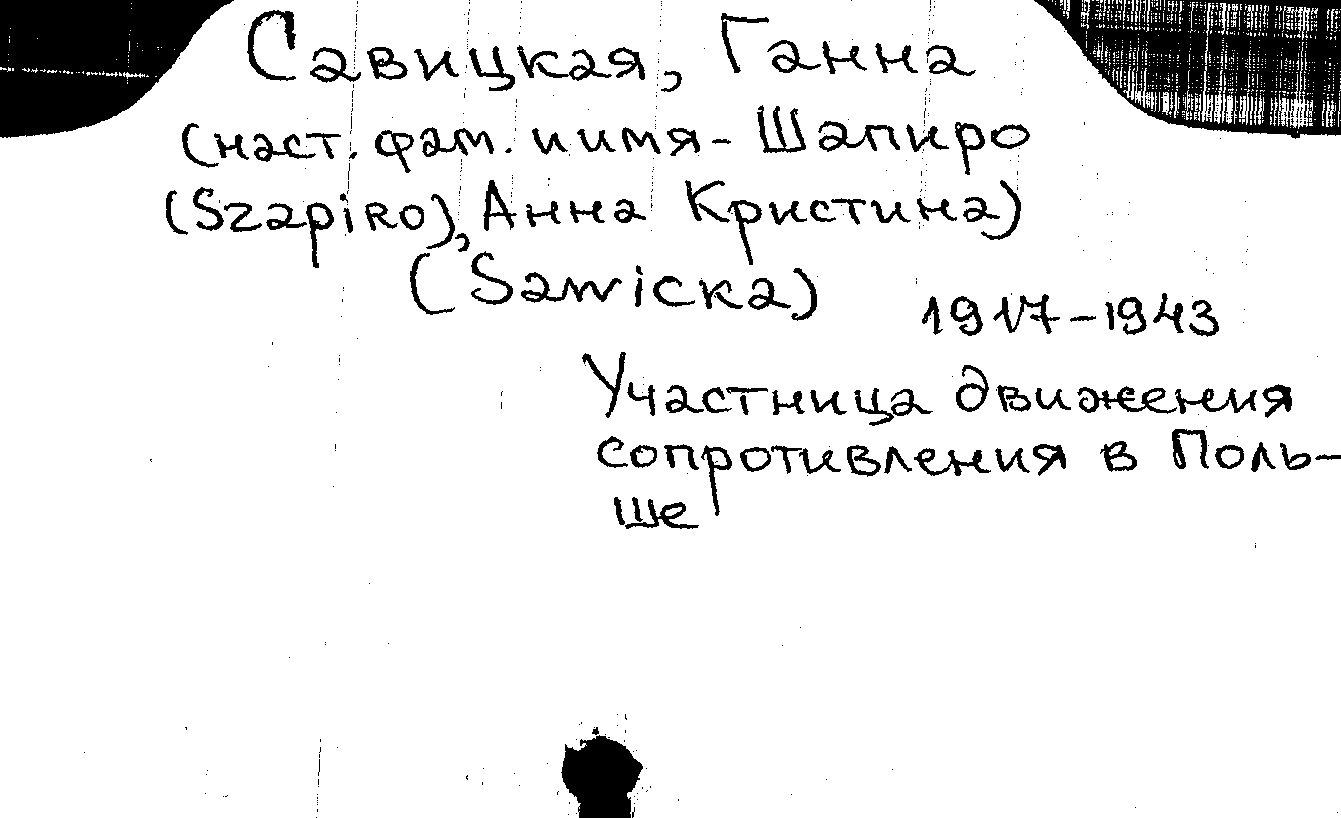 Савицкая, Ганна
(наст. фам. и имя - Шапиро
(Szapiro), Анна Кристина)
(Sawicka)
1917-1943
Участница движения
сопротивления в Поль-
ше